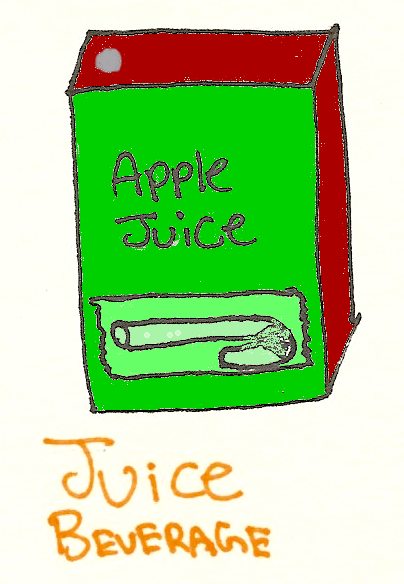 Apple
Juice
Juice
BEVERAGE